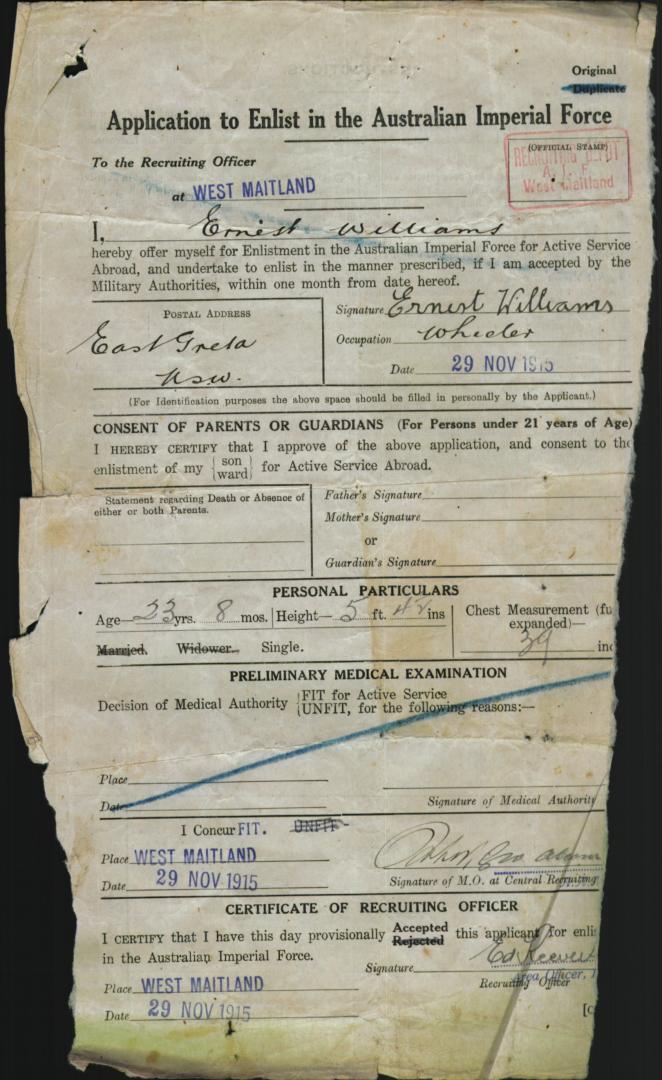 Original
Duplicate
Application to Enlist in the Australian Imperial Force
(OFFICIAL STAMP)
RECRUITING DEPOT
A. I. F.
West Maitland
To the Recruiting Officer
at WEST MAITLAND
I, Ernest Williams
hereby offer myself for Enlistment in the Australian Imperial Force for Active Service
Abroad, and undertake to enlist in the manner prescribed, if I am accepted by the
Military Authorities, within one month from date hereof.
POSTAL ADDRESS
East Greta
NSW.
Signature Ernest Williams
Occupation Wheeler
Date 29 NOV 1915
(For Identification purposes the above space should be filled in personally by the Applicant.)
CONSENT OF PARENTS OR GUARDIANS (For Persons under 21 years of Age)
I HEREBY CERTIFY that I approve of the above application, and consent to the
enlistment of my {son ward} for Active Service Abroad.
Statement regarding Death or Absence of
either or both Parents.
Father's Signature
Mother's Signature
or
Guardian's Signature
PERSONAL PARTICULARS
Age—23 yrs. 8 mos. Height—5 ft. ins
Chest Measurement (fu
expanded)—
39 inc
Married. Widower. Single.
PRELIMINARY MEDICAL EXAMINATION
Decision of Medical Authority {FIT for Active Service
UNFIT, for the following reasons:—
Place
Date
Signature of Medical Authority
I Concur FIT. UNFIT
Place WEST MAITLAND
Date 29 NOV 1915
Signature of M.O. at Central Recruiting
CERTIFICATE OF RECRUITING OFFICER
I CERTIFY that I have this day provisionally Accepted Rejected this applicant for enlis
in the Australian Imperial Force.
Signature
Area Officer,
Recruiting Officer
Place WEST MAITLAND
Date 29 NOV 1915